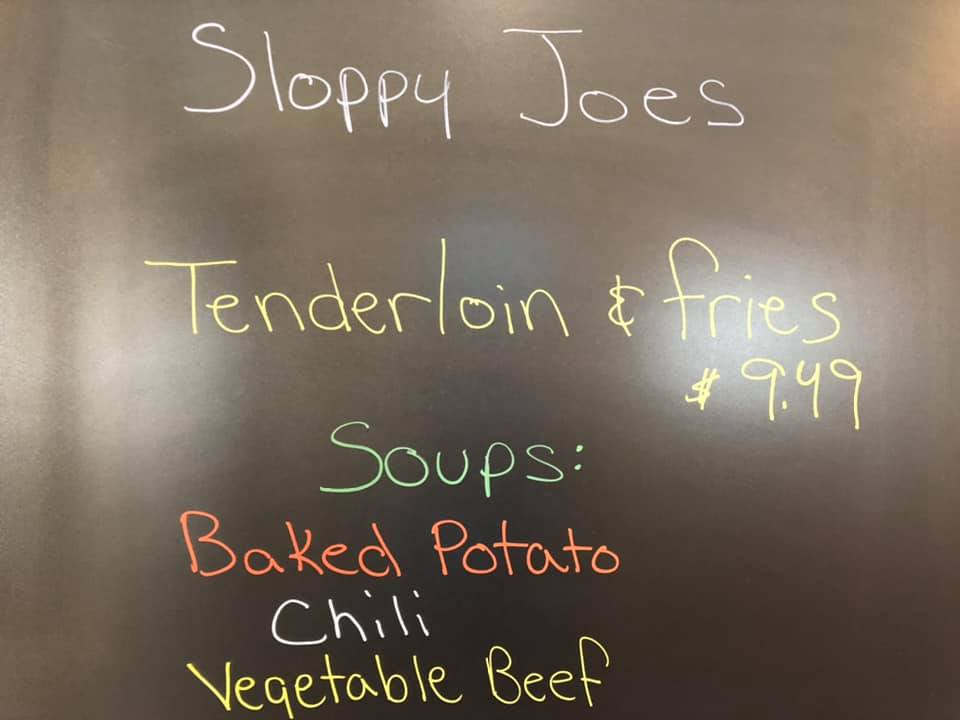 Sloppy Joes
Tenderloin & fries
$ 9.49
Soups:
Baked Potato
Chili
Vegetable Beef